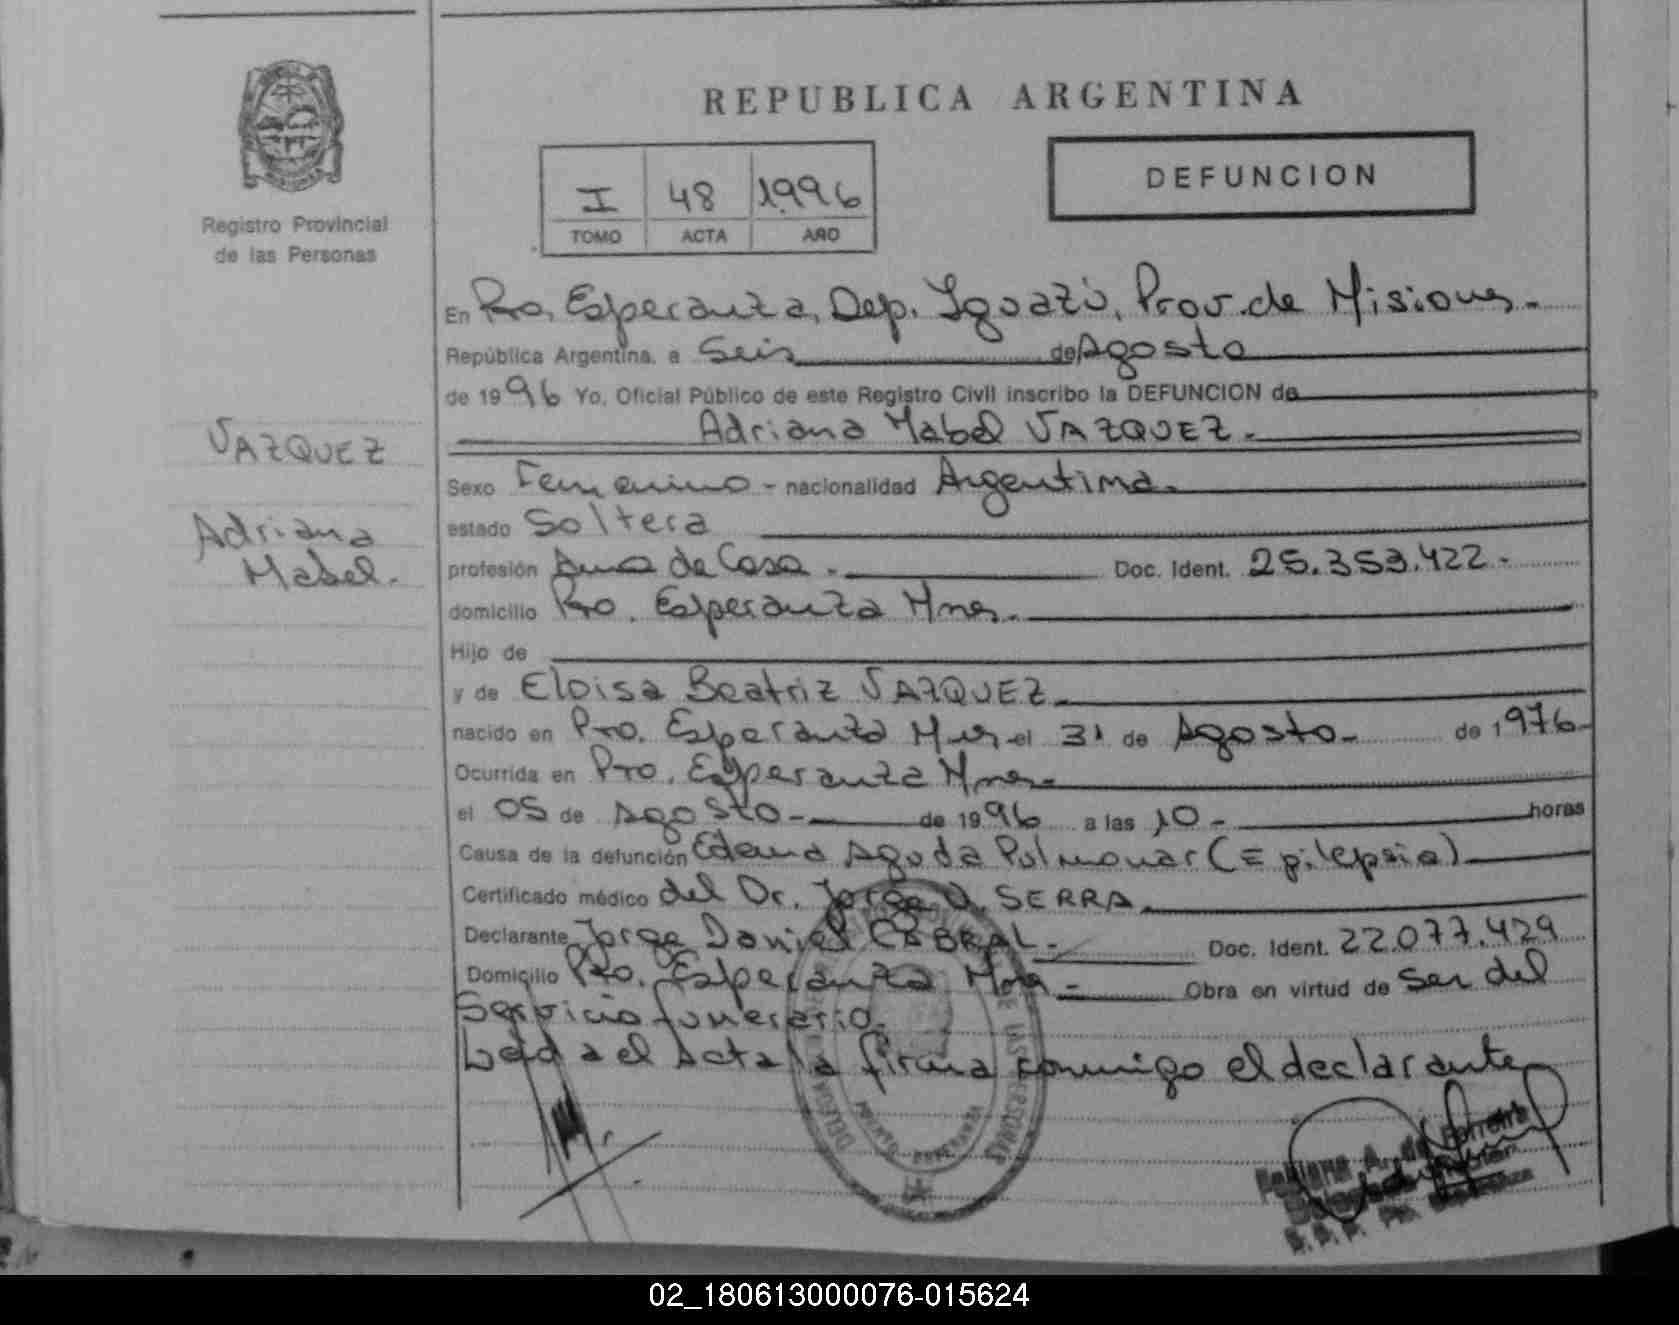 REPUBLICA ARGENTINA
DEFUNCION
I 48 1996
TOMO ACTA AÑO
Registro Provincial
de las Personas
En Pto. Esperanza, Dep. Iguazú, Prov. de Misiones.-
República Argentina, a Seis de Agosto
de 1996 Yo, Oficial Público de este Registro Civil inscribo la DEFUNCION de
Adriana Mabel VAZQUEZ.-
VAZQUEZ
Adriana
Mabel.-
Sexo Femenino - nacionalidad Argentina.
estado Soltera
profesión Ama de Casa.- Doc. Ident. 25.353.422.-
domicilio Pto. Esperanza Mnes.
Hijo de
y de Eloisa Beatriz VAZQUEZ.
nacido en Pto. Esperanza Mnes el 31 de Agosto.- de 1976-
Ocurrida en Pto. Esperanza Mnes.-
el 05 de Agosto.- de 1996 a las 10.- horas
Causa de la defunción Edema Agudo Pulmonar (Epilepsia)
Certificado médico del Dr. Jorge SERRA.
Declarante Jorge Daniel CABRAL.- Doc. Ident. 22.077.429
Domicilio Pto. Esperanza Obra en virtud de Ser del
Servicio funerario.
Leida el Acta la firma conmigo el declarante
DE LAS PERSONAS
02_180613000076-015624